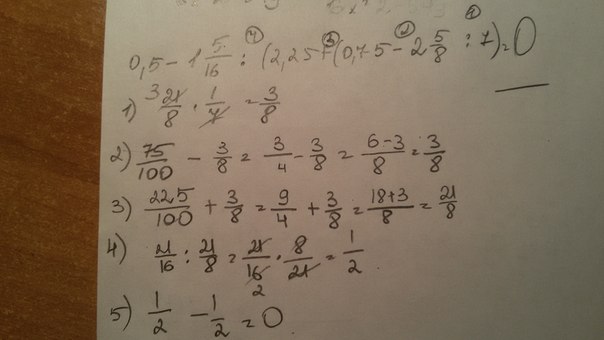 0,5 - 1 5/16 : (2,25 + (0,75 - 2 5/8 : 7) = 0
1) 21/8 · 1/7 = 3/8
2) 75/100 - 3/8 = 3/4 - 3/8 = 6-3/8 = 3/8
3) 225/100 + 3/8 = 9/4 + 3/8 = 18+3/8 = 21/8
4) 21/16 : 21/8 = 21/16 · 8/21 = 1/2
5) 1/2 - 1/2 = 0